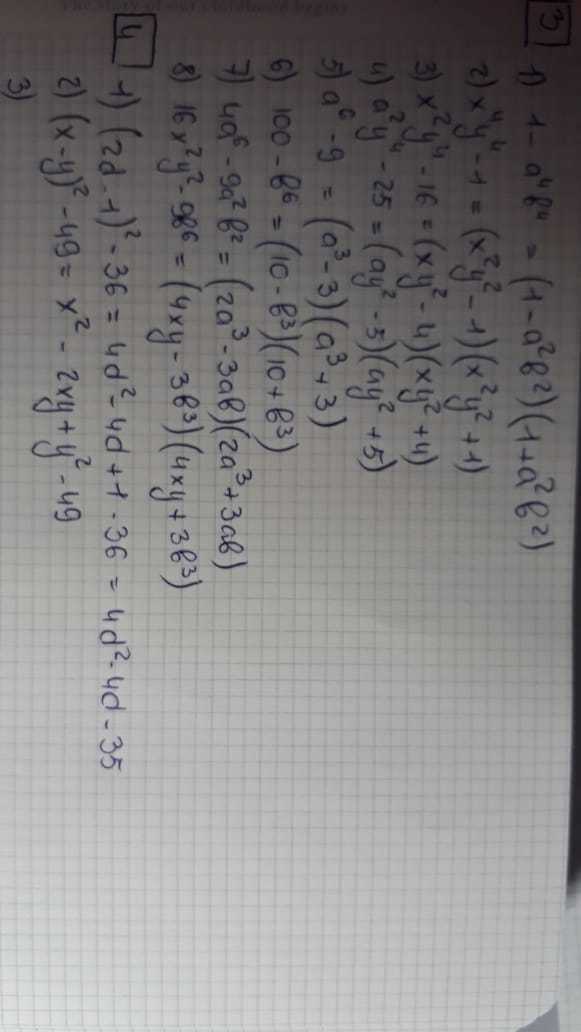 The story of our childhood begins
3
1) 1 - a⁴b⁴ = (1 - a²b²)(1 + a²b²)
2) x⁴y⁴ - 1 = (x²y² - 1)(x²y² + 1)
3) x²y⁴ - 16 = (xy² - 4)(xy² + 4)
4) a²y⁴ - 25 = (ay² - 5)(ay² + 5)
5) a⁶ - 9 = (a³ - 3)(a³ + 3)
6) 100 - b⁶ = (10 - b³)(10 + b³)
7) 4a⁶ - 9a²b² = (2a³ - 3ab)(2a³ + 3ab)
8) 16x²y² - 9b⁶ = (4xy - 3b³)(4xy + 3b³)
4
1) (2d - 1)² - 36 = 4d² - 4d + 1 - 36 = 4d² - 4d - 35
2) (x - y)² - 49 = x² - 2xy + y² - 49
3)